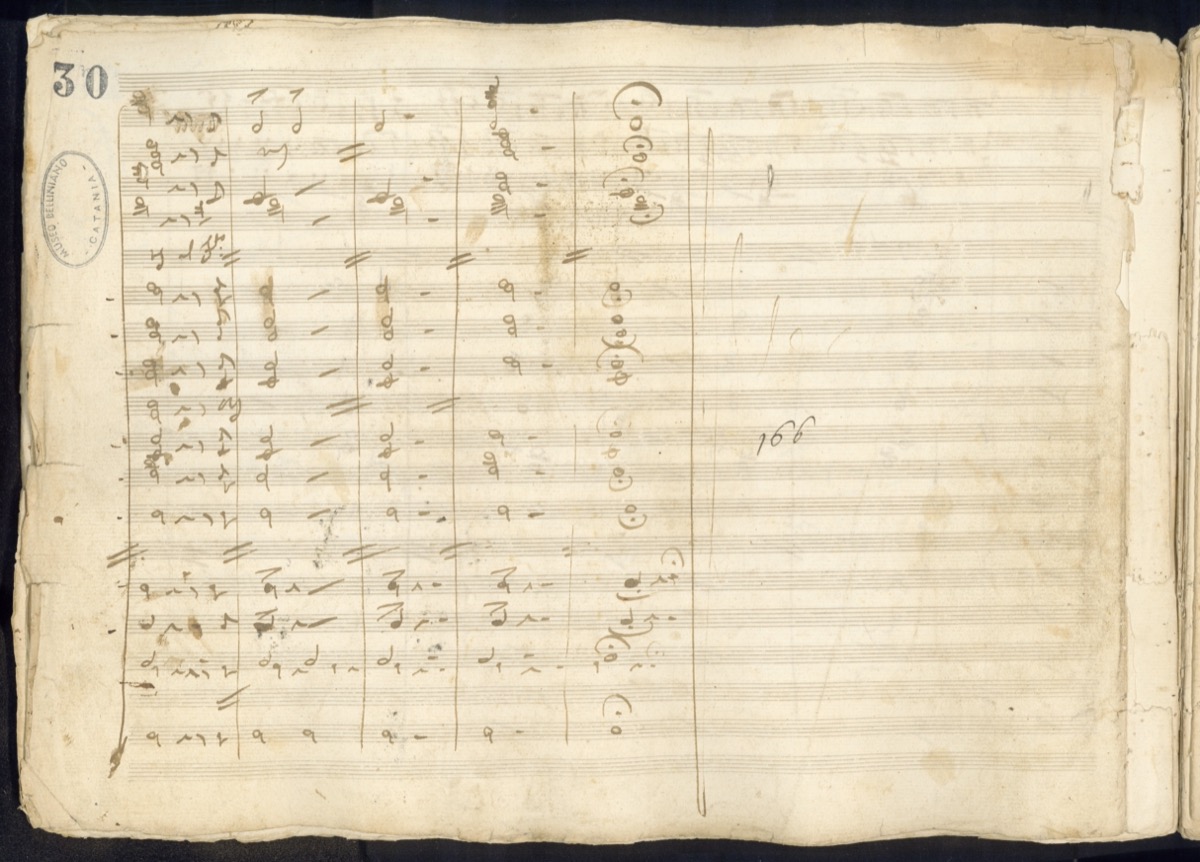 30
MUSEO BELLINIANO
CATANIA
166